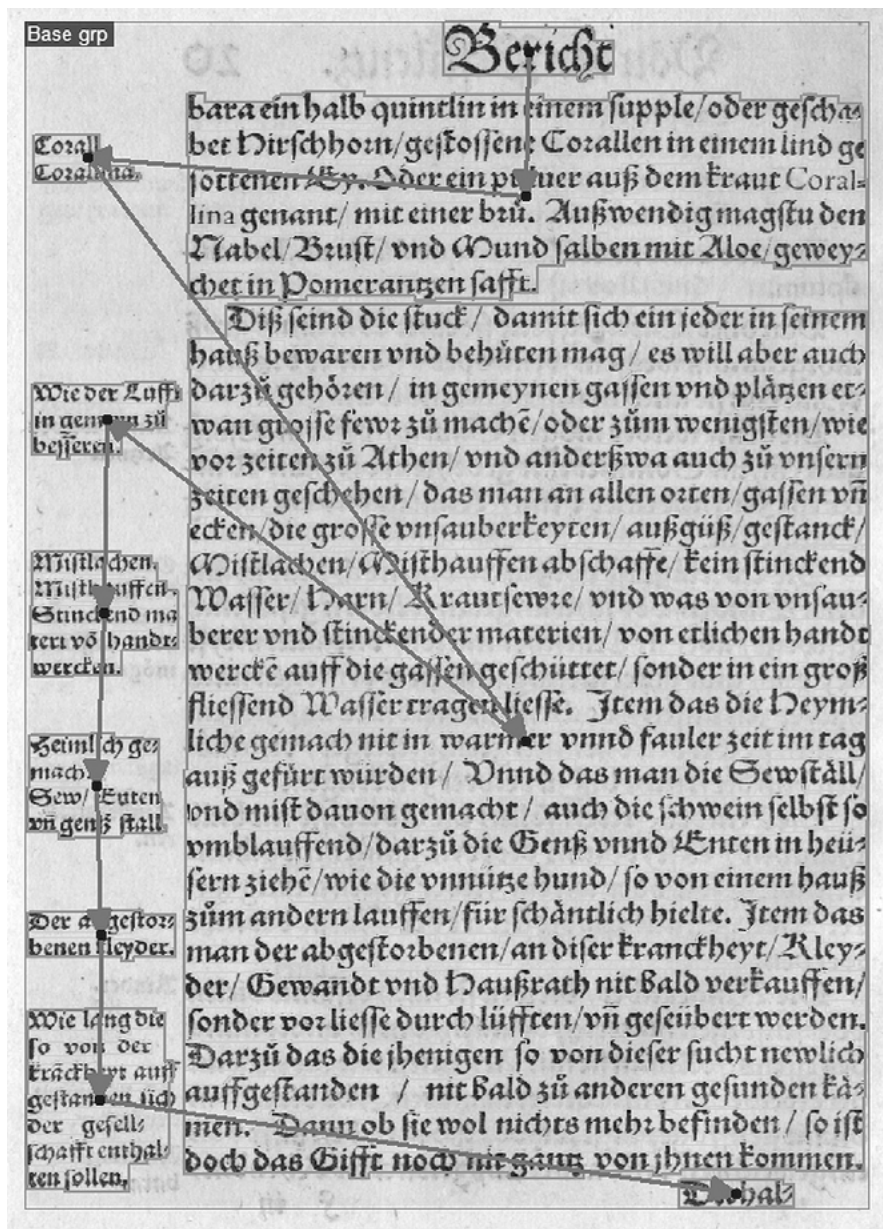 Base grp
Bericht
bara ein halb quintlin in einem supple/oder gescha-
bet Hirschhorn/gestossene Corallen in einem lind ge
sottenen Ey. Oder ein puluer auß dem kraut Coral-
lina genant/ mit einer brů. Außwendig magstu den
Nabel/Brust/ vnd Mund salben mit Aloe/gewey-
chet in Pomerantzen safft.
Corall
Corallina.
Diß seind die stuck/ damit sich ein jeder in seinem
hauß bewaren vnd behüten mag/ es will aber auch
darzů gehören/ in gemeynen gassen vnd plätzen et-
wan grosse fewr zů machē/oder zům wenigsten/wie
vor zeiten zů Athen/ vnd anderßwa auch zů vnsern
zeiten geschehen/ das man an allen orten/gassen vñ
ecken/die grosse vnsauberkeyten/ außgüß/gestanck/
Mistlachen/Misthauffen abschaffe/ kein stinckend
Wasser/ Harn/ Krautsewre/ vnd was von vnsau-
berer vnd stinckender materien/ von etlichen handt
werckē auff die gassen geschüttet/ sonder in ein groß
fliessend Wasser tragen liesse. Item das die Heym-
liche gemach nit in warmer vnnd fauler zeit im tag
auß gefürt würden/ Vnnd das man die Sewställ/
vnd mist dauon gemacht/ auch die schwein selbst so
vmblauffend/darzů die Genß vnnd Enten in heü-
sern ziehē/wie die vnnütze hund/ so von einem hauß
zům andern lauffen/für schäntlich hielte. Item das
man der abgestorbenen/an diser kranckheyt/Kley-
der/ Gewandt vnd Haußrath nit bald verkauffen/
sonder vor liesse durch lüfften/vñ geseübert werden.
Darzů das die jhenigen so von dieser sucht newlich
auffgestanden / nit bald zů anderen gesunden kä-
men. Dann ob sie wol nichts mehr befinden/ so ist
doch das Gifft noch nit gantz von jhnen kommen.
Wie der Lufft
in gemeyn zů
besseren.
Mistlachen.
Misthauffen.
Stinckend ma
teri vō handt-
wercken.
Heimlich ge-
mach.
Sew/ Enten
vñ genß stall.
Der abgestor-
benen kleyder.
Wie lang die
so von der
kräckheyt auff
gestanden sich
der gesell-
schafft enthal-
ten sollen.
Deßhal-